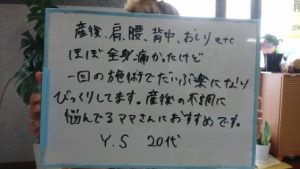 産後、肩、腰、背中、おしりetc
ほぼ全身痛かったけど
一回の施術でだいぶ楽になり
びっくりしてます。産後の不調に
悩んでるママさんにおすすめです。
Y.S 20代